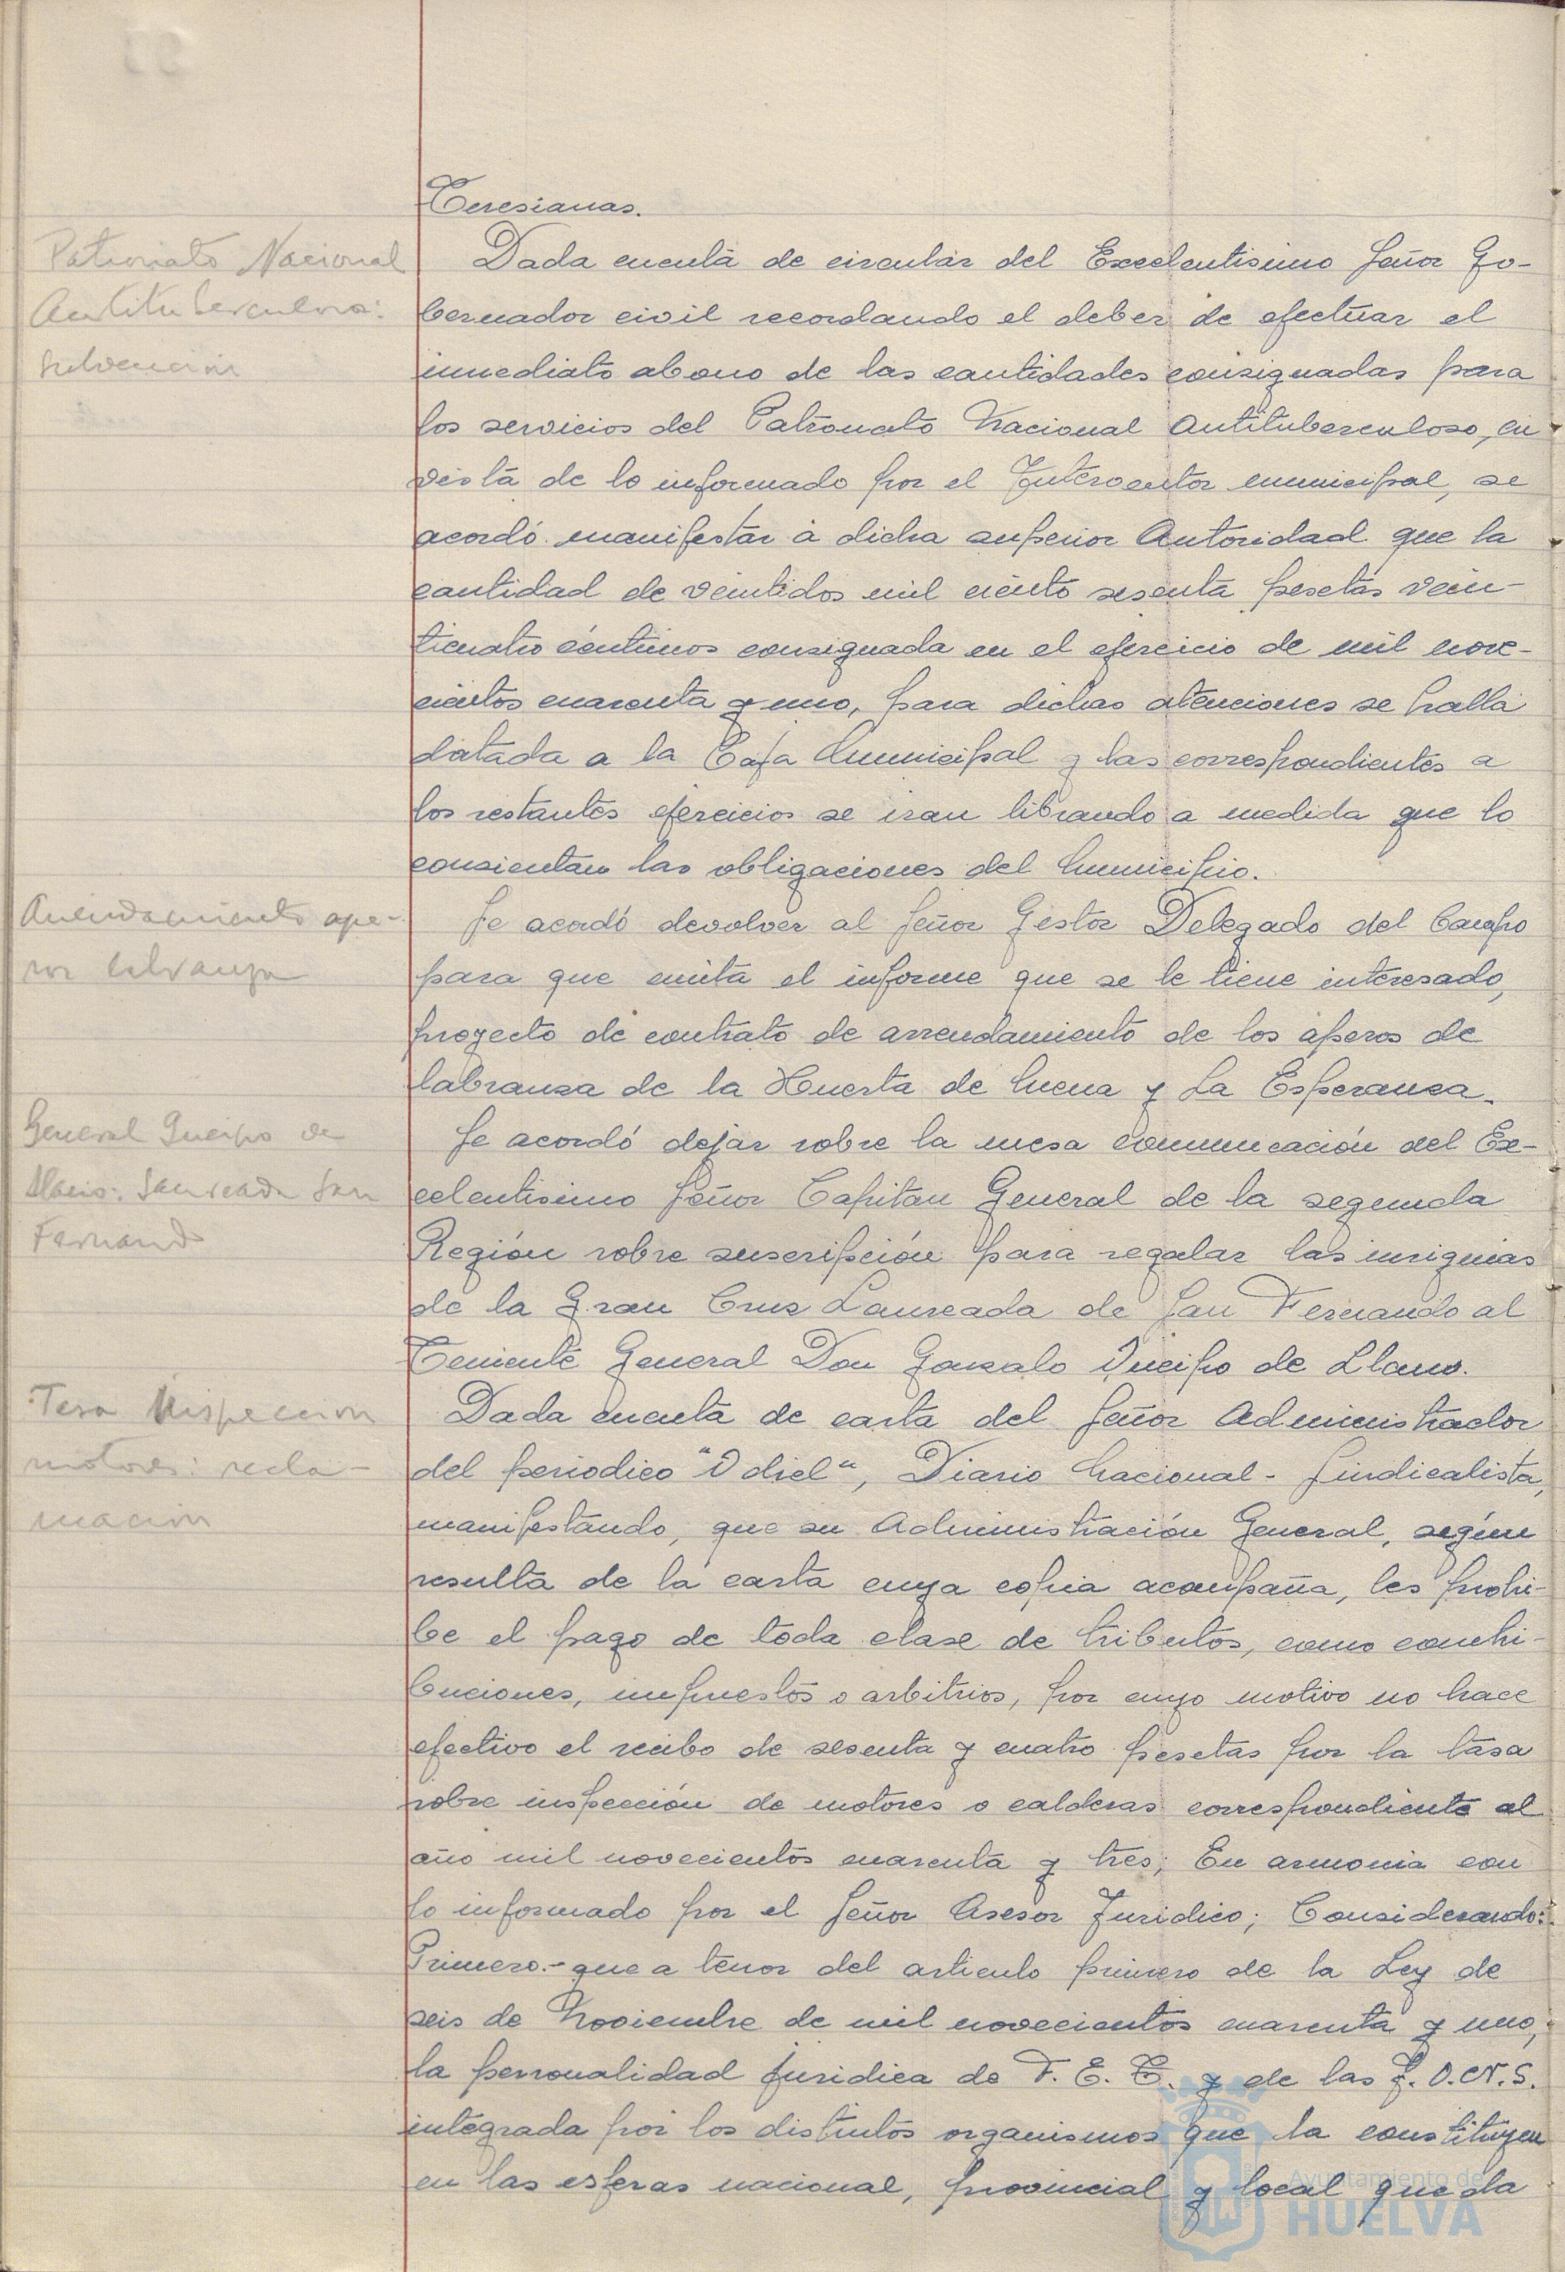 Teresianas.
Patronato Nacional
Antituberculoso:
subvención
Dada cuenta de circular del Excelentisimo Señor Go-
bernador civil recordando el deber de efectuar el
inmediato abono de las cantidades consignadas para
los servicios del Patronato Nacional Antituberculoso, en
vista de lo informado por el Interventor municipal, se
acordó manifestar a dicha superior Autoridad que la
cantidad de veintidos mil ciento sesenta pesetas vein-
ticuatro céntimos consignada en el ejercicio de mil nove-
cientos cuarenta y uno, para dichas atenciones se halla
datada a la Caja Municipal y las correspondientes a
los restantes ejercicios se iran librando a medida que lo
consientan las obligaciones del Municipio.
Arrendamiento ape-
ros labranza
Se acordó devolver al Señor Gestor Delegado del Campo
para que emita el informe que se le tiene interesado,
proyecto de contrato de arrendamiento de los aperos de
labranza de la Huerta de Mena y La Esperanza.
General Queipo de
Llano: Laureada San
Fernando
Se acordó dejar sobre la mesa comunicación del Ex-
celentisimo Señor Capitan General de la segunda
Región sobre suscripción para regalar las insignias
de la Gran Cruz Laureada de San Fernando al
Teniente General Don Gonzalo Queipo de Llano.
Tasa Inspeccion
motores: recla-
macion
Dada cuenta de carta del Señor Administrador
del periodico "Odiel", Diario Nacional-Sindicalista,
manifestando, que su Administración General, según
resulta de la carta cuya copia acompaña, les prohi-
be el pago de toda clase de tributos, como contri-
buciones, impuestos o arbitrios, por cuyo motivo no hace
efectivo el recibo de sesenta y cuatro pesetas por la tasa
sobre inspección de motores o calderas correspondiente al
año mil novecientos cuarenta y tres; En armonia con
lo informado por el Señor Asesor Juridico; Considerando:
Primero.- que a tenor del articulo primero de la Ley de
seis de Noviembre de mil novecientos cuarenta y uno,
la personalidad juridica de F. E. T. y de las J.O.N.S.
integrada por los distintos organismos que la constituyen
en las esferas nacional, provincial y local queda
Ayuntamiento de
HUELVA